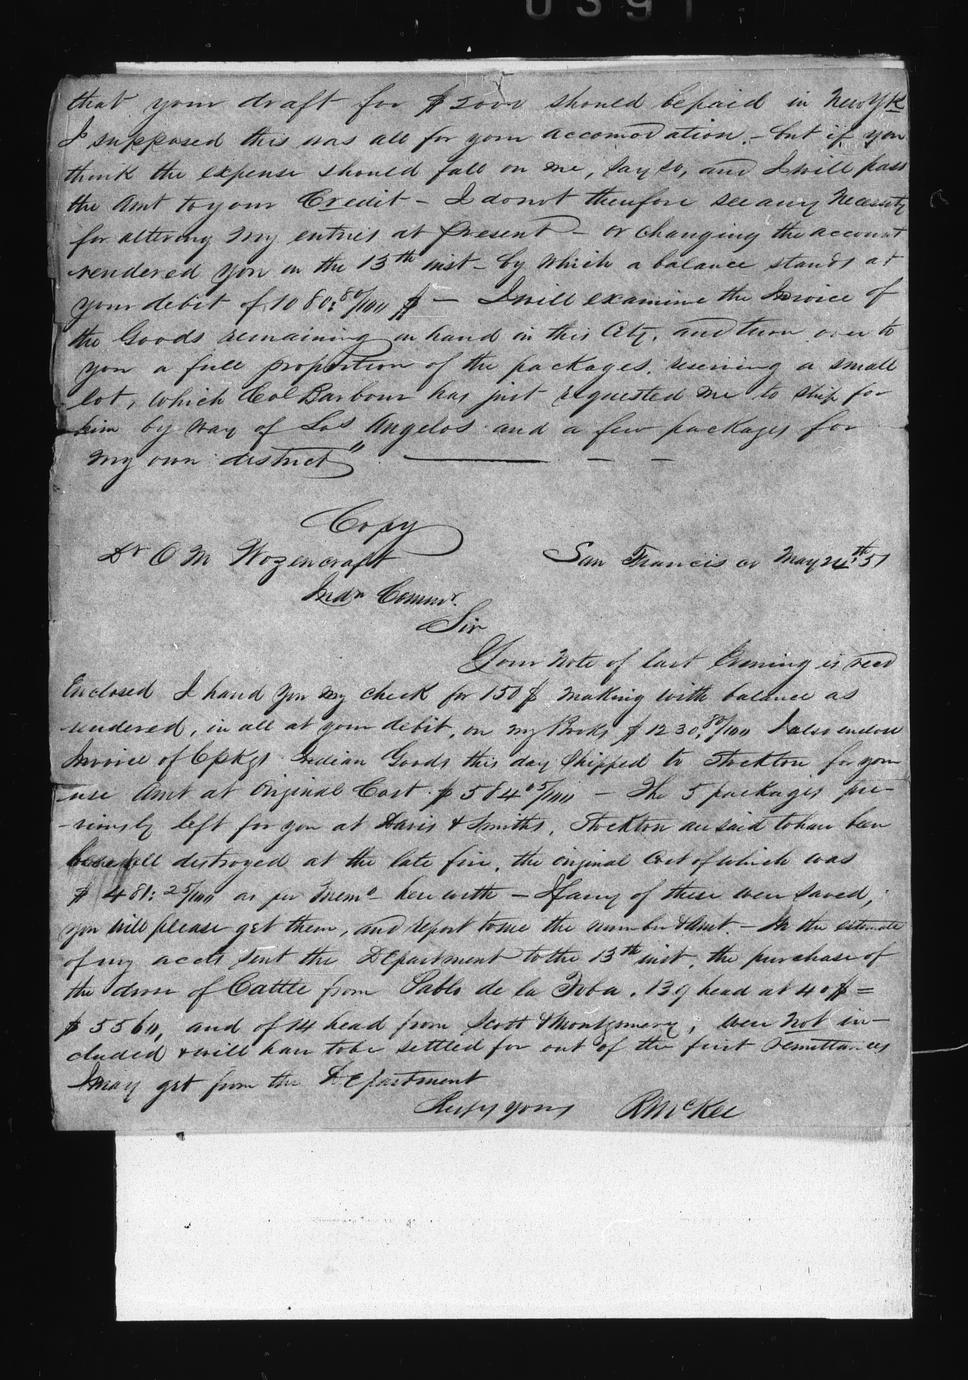 0391
that your draft for $2000 should be paid in New Yk
I supposed this was all for your accomodation. - but if you
think the expense should fall on me, say so, and I will pass
the Amt to your Credit - I do not therefore see any Necessity
for altering my entries at Present - or changing the account
rendered you on the 13th inst - by which a balance stands at
your debit of 1080:80/100 $ - I will examine the Invoice of
the Goods remaining on hand in this City, and turn over to
you a full proportion of the packages, reserving a small
lot, which Col Barbour has just requested me to ship for
him by way of Los Angelos and a few packages for
my own district"
Copy
Dr O M Wozencraft San Francisco May 24th 51
Indn Commr.
Sir
Your Note of last Evening is recd
Enclosed I hand you my check for 150$ making with balance as
rendered, in all at your debit, on my Books $1230,80/100 I also enclose
Invoice of 6 pkgs Indian Goods this day Shipped to Stockton for your
use Amt at Original Cost $584 05/100 - The 5 packages pre-
-viously left for you at Davis & Smiths, Stockton are said to have been
all destroyed at the late fire, the original Cost of which was
$481:25/100 as per Memo herewith - If any of these were saved,
you will please get them, and report to me the number & Amt. - In the estimate
of my accts sent the Department to the 13th inst, the purchase of
the drove of Cattle from Pablo de la Toba, 139 head at 40$ =
$5560, and of 14 head from Scott & Montgomery, were not in-
cluded & will have to be settled for out of the first remittances
I may get from the Department
Respy yours RMcKee